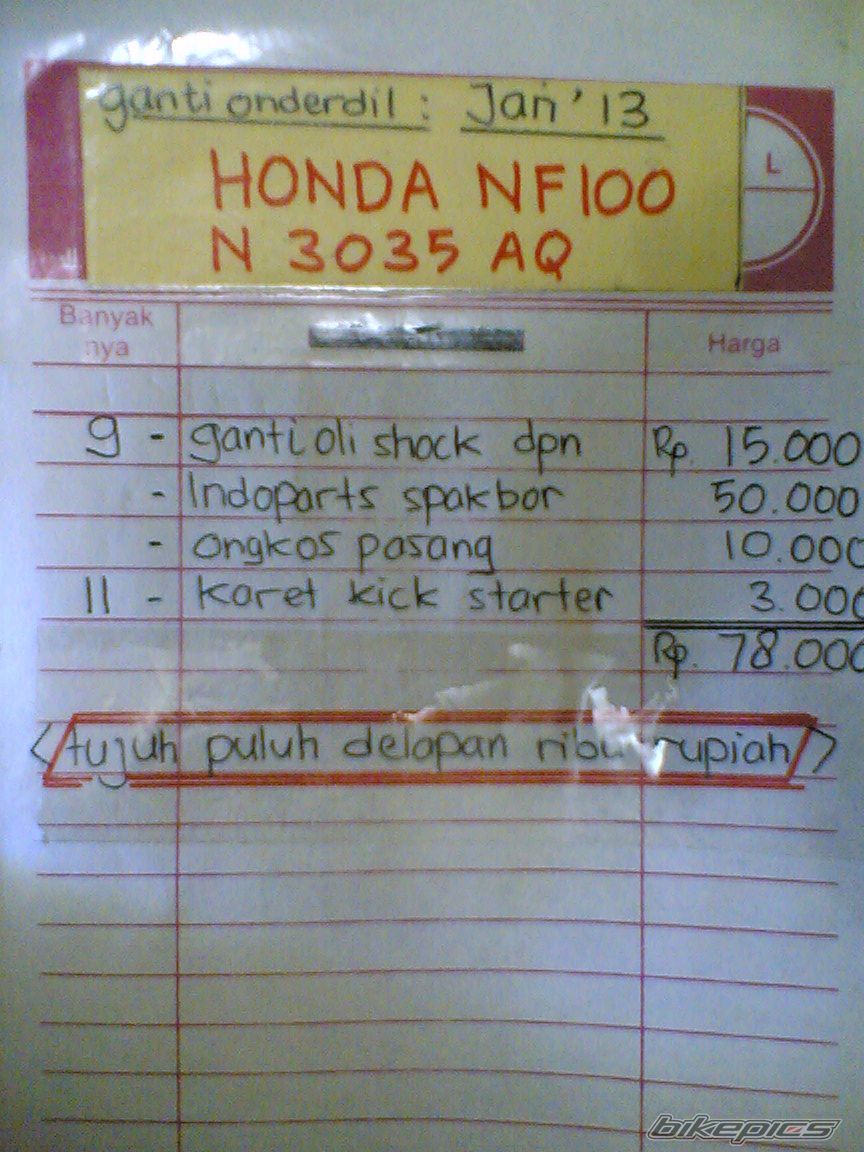 ganti onderdil : Jan '13
HONDA NF100
N 3035 AQ
L
Banyak
nya
Harga
9 - ganti oli shock dpn Rp. 15.000
- Indoparts spakbor 50.000
- ongkos pasang 10.000
11 - karet kick starter 3.000
Rp. 78.000
<tujuh puluh delapan ribu rupiah>
bikepics